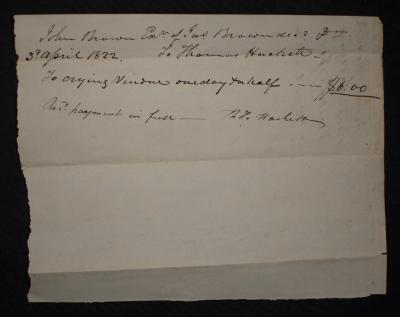 John Brown Exr. of Jas Brown decd. Dr
3d April 1822. To Thomas Hackett
To crying Vendue one day & a half — $6.00
Recd. payment in full — Tho Hackett